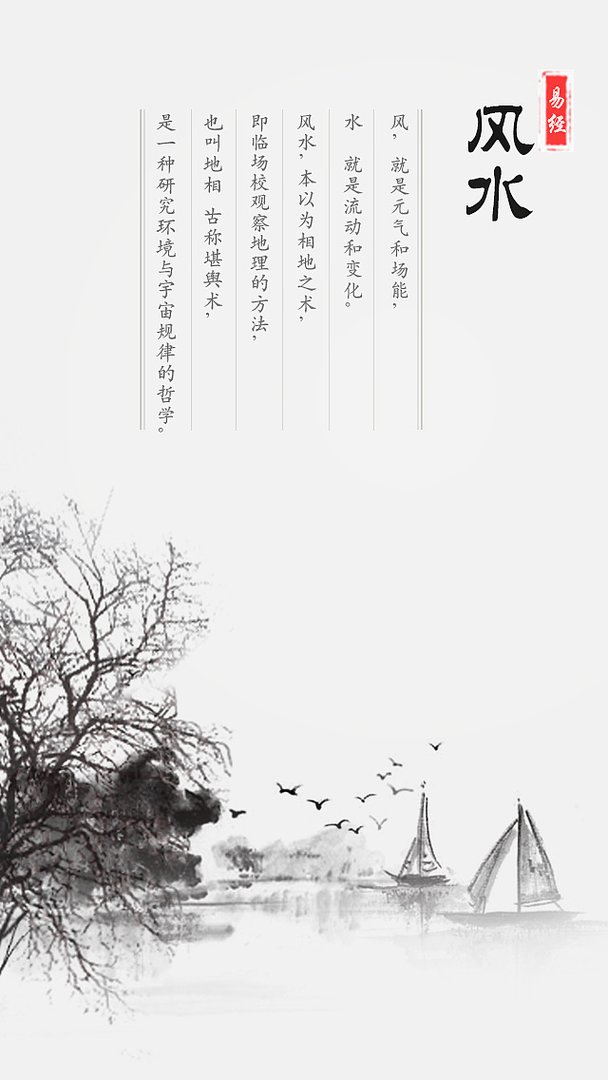 易经
风水
风，就是元气和场能，
水 就是流动和变化。
风水，本以为相地之术，
即临场校观察地理的方法，
也叫地相 古称堪舆术，
是一种研究环境与宇宙规律的哲学。